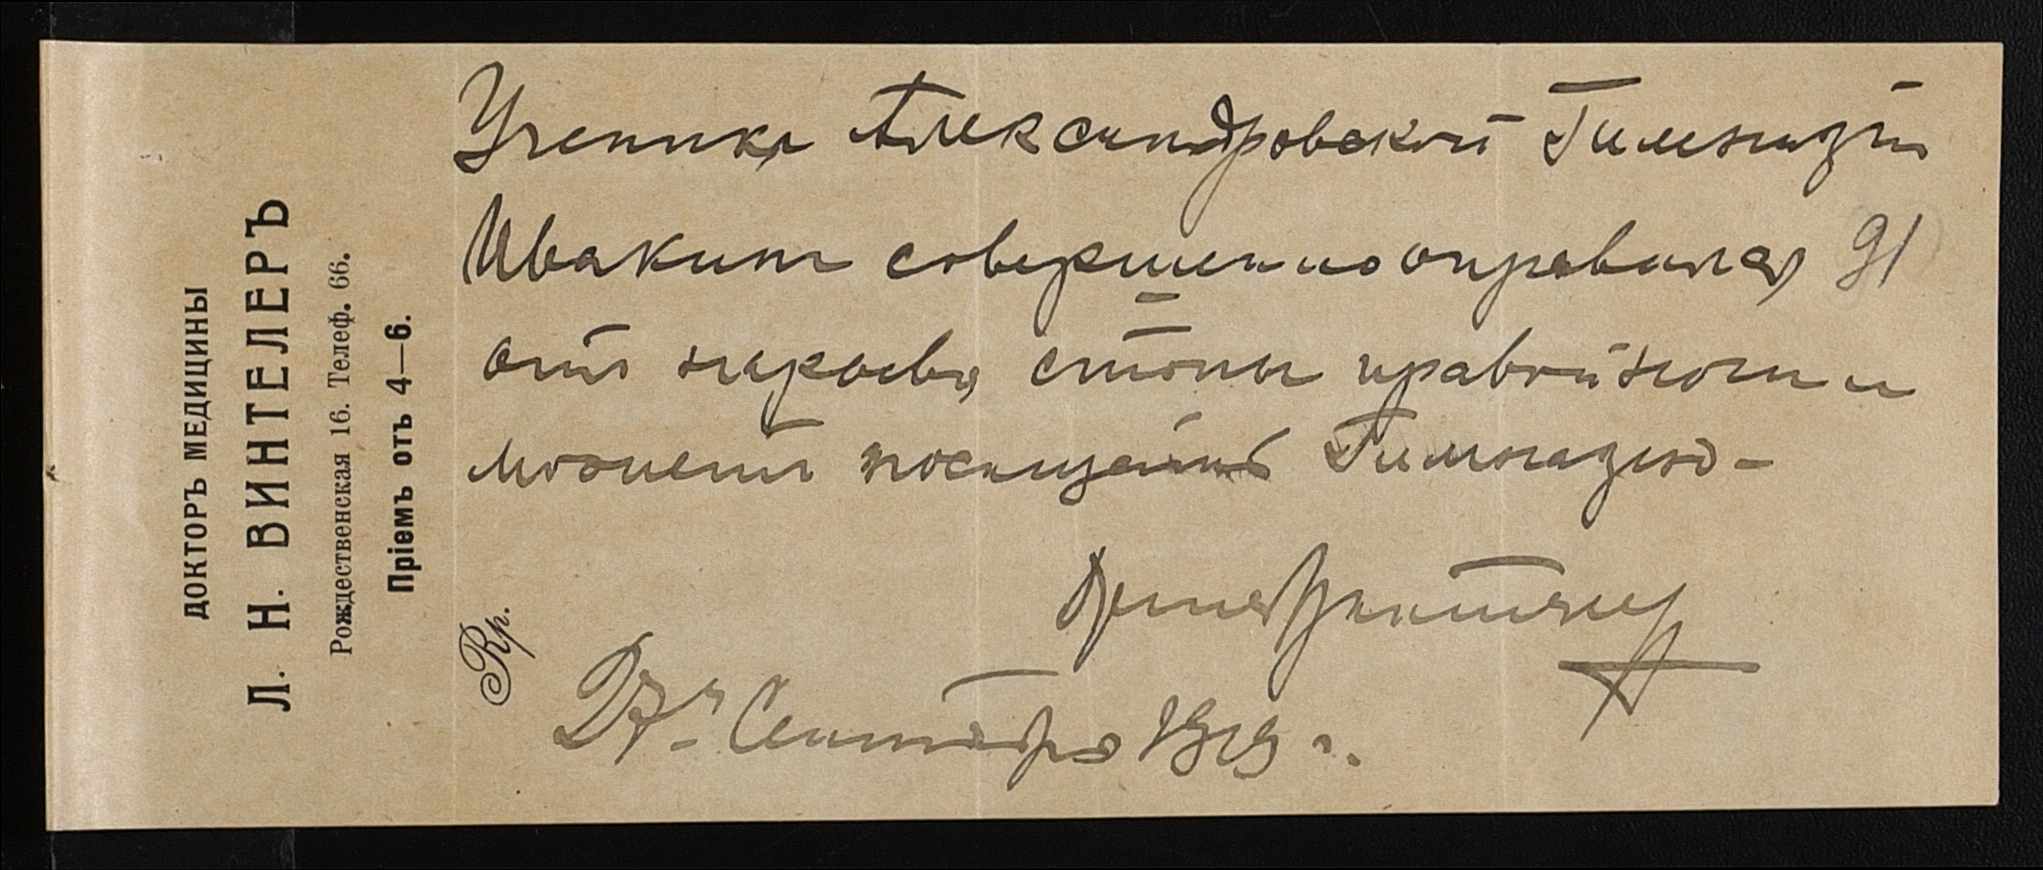 ДОКТОРЪ МЕДИЦИНЫ
Л. Н. ВИНТЕЛЕРЪ
Рождественская 16. Телеф. 66.
Пріемъ отъ 4—6.
Rp.
Ученикъ Александровской Гимназіи
Ивакинъ совершенно оправился
91
отъ стопы правой ноги и
можетъ посещать Гимназію-
Винтелеръ
27 Сентября 1919 г.